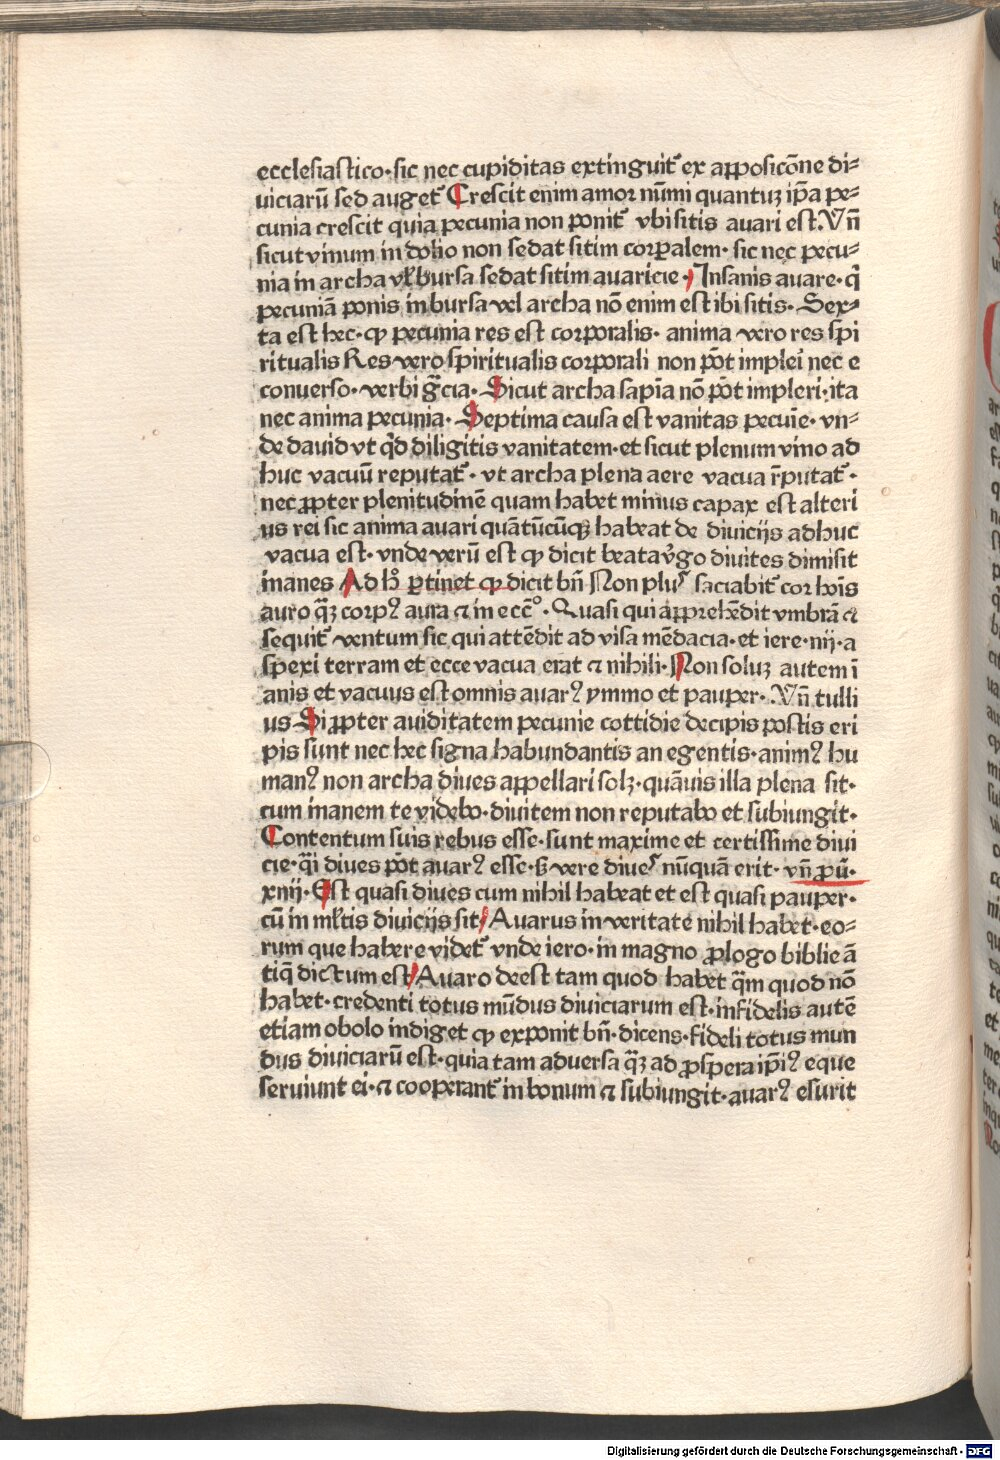 ecclesiastico·sic nec cupiditas extinguit᷑ ex apposicōne di⸗
uiciarū sed auget᷑ Crescit enim amor nūmi quantuꝫ ip̄a pe⸗
cunia crescit quia pecunia non ponit᷑ vbi sitis auari est.Vn̄
sicut vinum in dolio non sedat sitim corꝑalem· sic nec pecu⸗
nia in archa vl̛ bursa sedat sitim auaricie· Insanis auare·q̄
pecuniā ponis in bursa vel archa nō enim est ibi sitis· Sex⸗
ta est hec·ꝙ pecunia res est corporalis· anima vero res spi
ritualis Res vero spiritualis corporali non pōt impleri nec e
conuerso·verbi gr̄cia· Sicut archa sapīa nō pōt impleri·ita
nec anima pecunia· Septima causa est vanitas pecuīe· vn⸗
de dauid vt qͥd diligitis vanitatem·et sicut plenum vino ad
huc vacuū reputat᷑· vt archa plena aere vacua r̄putat᷑·
nec ꝓpter plenitudinē quam habet minus capax est alteri
us rei sic anima auari quātūcūqꝫ habeat de diuicijs adhuc
vacua est·vnde verū est ꝙ dicit beata v̄go diuites dimisit
inanes Ad hͦ ꝑtinet ꝙ dicit bn̄ Non plus saciabit᷑ cor hoīs
auro qͣꝫ corpꝰ aura ⁊ in eccͤͦ· Quasi qui apprehēdit vmbrā ⁊
sequit᷑ ventum sic qui attēdit ad visa mēdacia·et iere·iiij·a
spexi terram et ecce vacua erat ⁊ nihili·Non soluꝫ autem ī
anis et vacuus est omnis auarꝰ ymmo et pauper· Vn̄ tulli
us Si ꝓpter auiditatem pecunie cottidie decipis postis eri
pis sunt nec hec signa habundantis an egentis·animꝰ hu
manꝰ non archa diues appellari solꝫ·quāuis illa plena sit·
cum inanem te videbo·diuitem non reputabo et subiungit·
Contentum suis rebus esse·sunt maxime et certissime diui
cie·qͣi diues pōt auarꝰ esse·sꝫ vere diues nūquā erit· vn̄ ꝓū·
xiij· Est quasi diues cum nihil habeat et est quasi pauper·
cū in ml̛tis diuicijs sit Auarus in veritate nihil habet·eo⸗
rum que habere videt᷑ vnde iero·in magno ꝓlogo biblie ā
tiq̄ dictum est Auaro deest tam quod habet qͣm quod nō
habet·credenti totus mūdus diuiciarum est·infidelis autē
etiam obolo indiget ꝙ exponit bn̄·dicens·fideli totus mun
dus diuiciarū est·quia tam aduersa qͣꝫ ad ꝓspera ip̄iꝰ eque
seruiunt ei·⁊ cooperant᷑ in bonum ⁊ subiungit·auarꝰ esurit
Digitalisierung gefördert durch die Deutsche Forschungsgemeinschaft · DFG